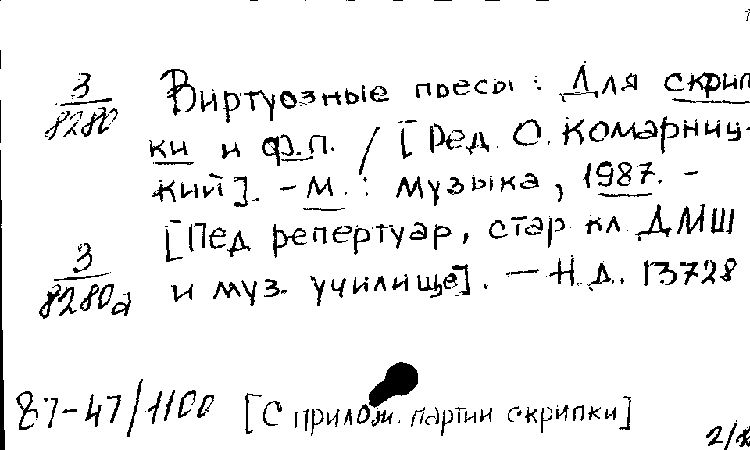 3/8280 Виртуозные пьесы: Для скрип
ки и ф.п. / [Ред. О. Комарниц-
кий]. - М.: Музыка, 1987. -
[Пед репертуар, стар кл ДМШ
3/8280а и муз. училище]. — Н.д. 13728
87-47/1100 [С прилож. партии скрипки]